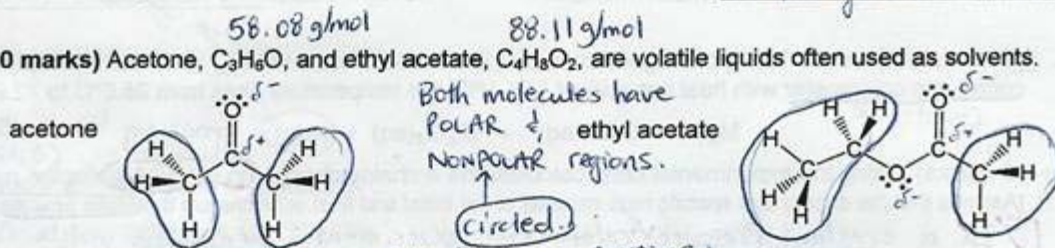 58.08 g/mol 88.11 g/mol
0 marks) Acetone, C₃H₆O, and ethyl acetate, C₄H₈O₂, are volatile liquids often used as solvents.
acetone
O δ-
C δ+
H H
H C C H
H H
Both molecules have
POLAR &
NONPOLAR regions.
circled.
ethyl acetate
δ-
H H O
H C C C δ+ H
H H O C H
H